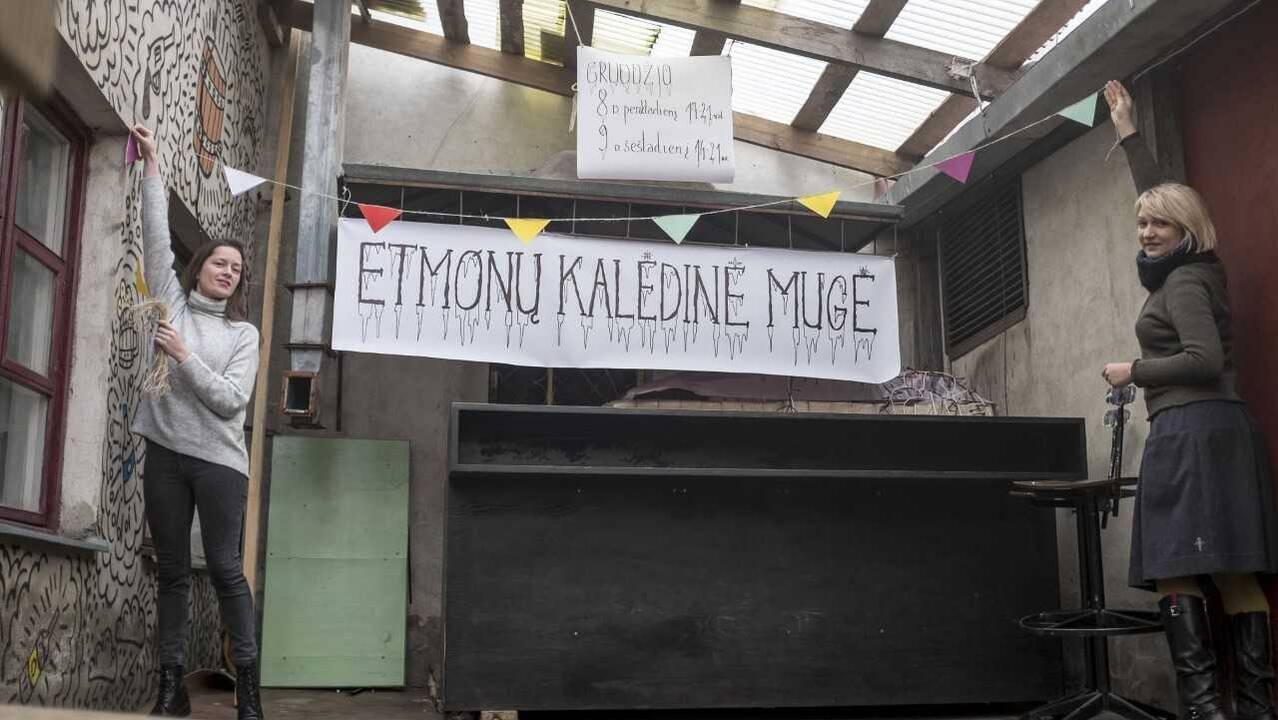 GRUODŽIO
8 D penktadienį 14-21 val
9 D šeštadienį 14-21 val
ETMONŲ KALĖDINĖ MUGĖ